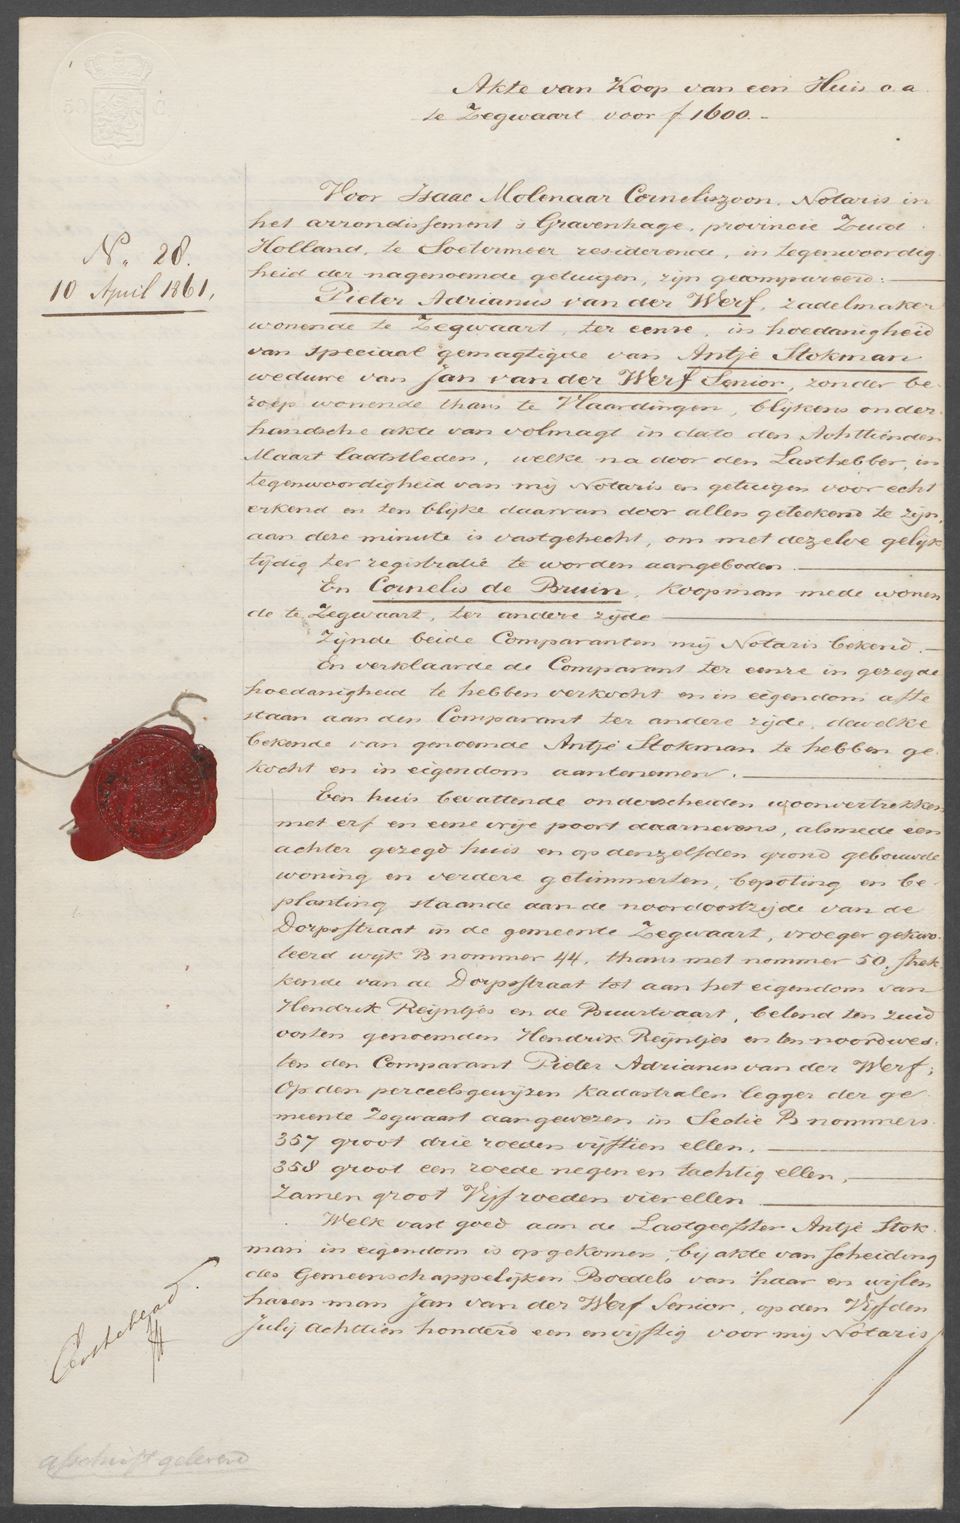 Akte van Koop van een Huis c.a.
te Zegwaart voor f 1600.-
Voor Isaac Molenaar Corneliszoon, Notaris in
het arrondissement 's Gravenhage, provincie Zuid
Holland, te Soetermeer residerende, in tegenwoordig
heid der nagenoemde getuigen, zijn gecompareerd:
No. 28.
10 April 1861.
Pieter Adrianus van der Werf, zadelmaker
wonende te Zegwaart, ter eenre, in hoedanigheid
van speciaal gemagtigde van Antje Stokman
weduwe van Jan van der Werf Senior, zonder be-
roep wonende thans te Vlaardingen, blijkens onder-
handsche akte van volmagt in dato den Achttienden
Maart laatstleden, welke na door den Lasthebber, in
tegenwoordigheid van mij Notaris en getuigen voor echt
erkend en ten blijke daarvan door allen geteekend te zijn,
aan deze minute is vastgehecht, om met dezelve gelijk
tijdig ter registratie te worden aangeboden.
En Cornelis de Bruin, Koopman mede wonen
de te Zegwaart, ter andere zijde
Zijnde beide Comparanten mij Notaris bekend.
En verklaarde de Comparant ter eenre in gezegde
hoedanigheid te hebben verkocht en in eigendom afte
staan aan den Comparant ter andere zijde, dewelke
bekende van genoemde Antje Stokman te hebben ge-
kocht en in eigendom aantenemen.
Een huis bevattende onderscheiden woonvertrekken
met erf en eene vrije poort daarnevens, alsmede een
achter gezegd huis en op denzelfden grond gebouwde
woning en verdere getimmerten, bepoting en be-
planting staande aan de noordoostzijde van de
Dorpsstraat in de gemeente Zegwaart, vroeger gekwo-
teerd wijk B nommer 44, thans met nommer 50, strek
kende van de Dorpsstraat tot aan het eigendom van
Hendrik Reijntjes en de Buurtvaart, belend ten zuid
oosten genoemden Hendrik Reijntjes en ten noordwes-
ten den Comparant Pieter Adrianus van der Werf;
Op den perceelsgewijzen kadastralen legger der ge
meente Zegwaart aangewezen in Sectie B nommers
357 groot drie roeden vijftien ellen,
358 groot een roede negen en tachtig ellen,
Zamen groot Vijf roeden vier ellen
Welk vast goed aan de Lastgeefster Antje Stok-
man in eigendom is opgekomen bij akte van scheiding
des Gemeenschappelijken Boedels van haar en wijlen
haren man Jan van der Werf Senior, op den Vijfden
Julij Achttien honderd een en vijftig voor mij Notaris
afschrift geleverd